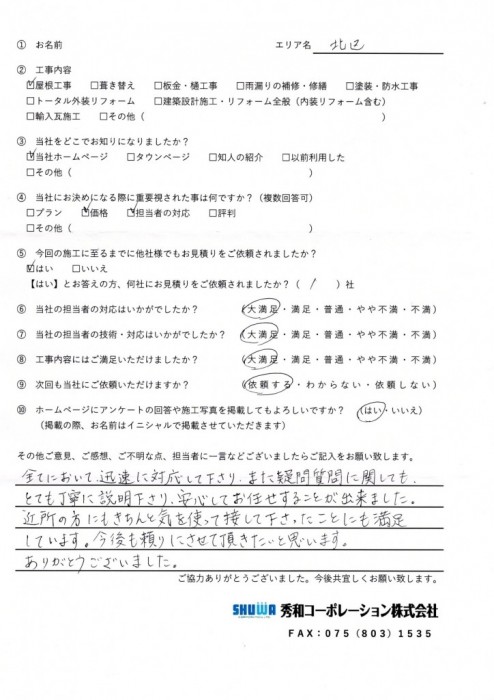 ① お名前 エリア名 北区
② 工事内容
☑屋根工事 □葺き替え □板金・樋工事 □雨漏りの補修・修繕 □塗装・防水工事
□トータル外装リフォーム □建築設計施工・リフォーム全般（内装リフォーム含む）
□輸入瓦施工 □その他（ ）
③ 当社をどこでお知りになりましたか？
☑当社ホームページ □タウンページ □知人の紹介 □以前利用した
□その他（ ）
④ 当社にお決めになる際に重要視された事は何ですか？（複数回答可）
□プラン ☑価格 ☑担当者の対応 □評判
□その他（ ）
⑤ 今回の施工に至るまでに他社様でもお見積りをご依頼されましたか？
☑はい □いいえ
【はい】とお答えの方、何社にお見積りをご依頼されましたか？（ 1 ）社
⑥ 当社の担当者の対応はいかがでしたか？ （大満足・満足・普通・やや不満・不満）
⑦ 当社の担当者の技術・対応はいかがでしたか？ （大満足・満足・普通・やや不満・不満）
⑧ 工事内容にはご満足いただけましたか？ （大満足・満足・普通・やや不満・不満）
⑨ 次回も当社にご依頼いただけますか？ （依頼する・わからない・依頼しない）
⑩ ホームページにアンケートの回答や施工写真を掲載してもよろしいですか？ （はい・いいえ）
（掲載の際、お名前はイニシャルで掲載させていただきます）
その他ご意見、ご感想、ご不明な点、担当者に一言などございましたらご記入をお願い致します。
全てにおいて、迅速に対応して下さり、また疑問質問に関しても、
とても丁寧に説明下さり、安心してお任せすることが出来ました。
近所の方にもきちんと気を使って接して下さったことにも満足
しています。今後も頼りにさせて頂きたいと思います。
ありがとうございました。
ご協力ありがとうございました。今後共宜しくお願い致します。
SHUWA 秀和コーポレーション株式会社
FAX：075（803）1535